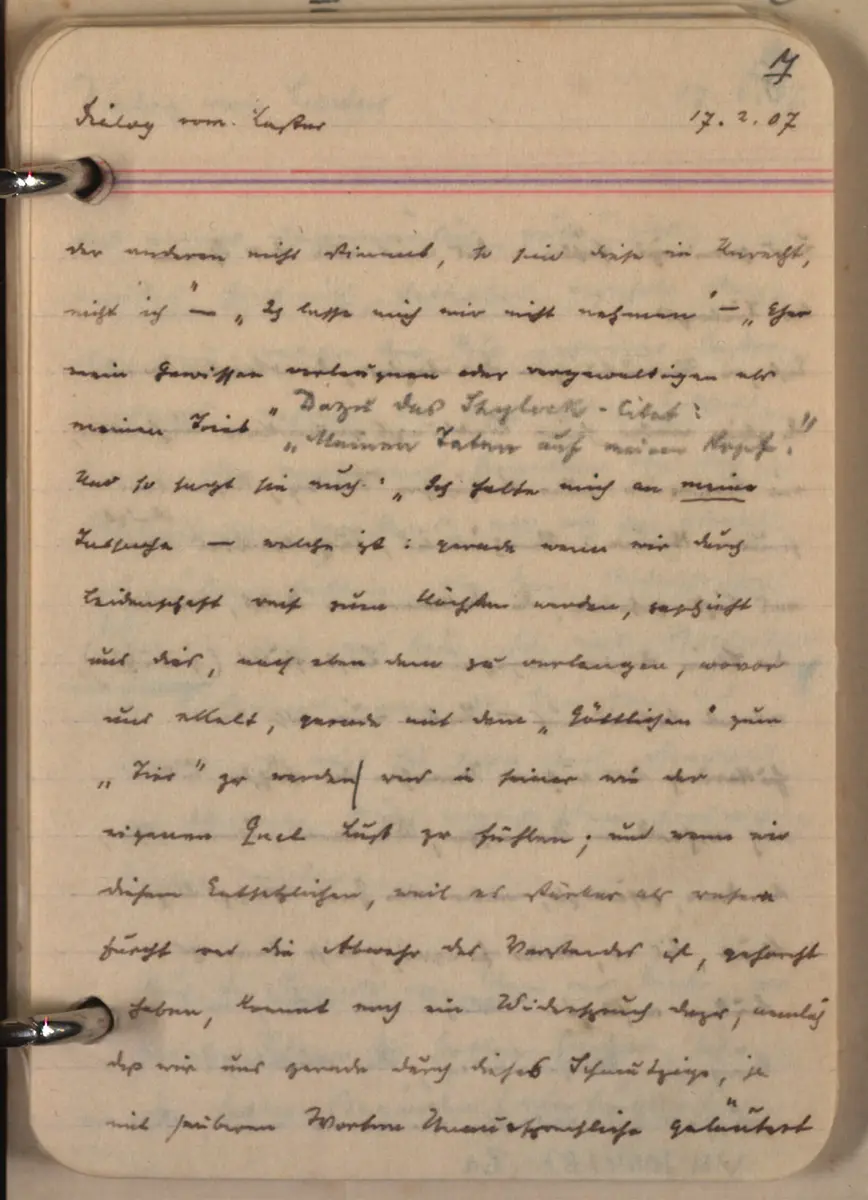 7
Dialog vom Laster 17.2.07
der anderen nicht stimmt, so sind diese in Unrecht,
nicht ich" — „Ich lasse mich mir nicht nehmen" — „Eher
mein Gewissen verleugnen oder vergewaltigen als
meinen Trieb"
„Dazu das Shylock-Citat:
„Meinen Taten auf meinen Kopf!"
Und so sagt sie auch: „Ich halte mich an meine
Tatsache — welche ist: gerade wenn wir durch
Leidenschaft reif zum Höchsten werden, geschieht
uns dies, nach eben dem zu verlangen, wovor
uns ekelt, gerade mit dem „Göttlichen" zum
„Tier" zu werden und in seiner wie der
eigenen Qual Lust zu fühlen; und wenn wir
diesem Entsetzlichen, weil es stärker als unsere
Furcht und die Abwehr des Verstandes ist, gehorcht
haben, kommt noch ein Widerspruch dazu, nemlich
daß wir uns gerade durch dieses Schmutzige, ja
mit sauberen Worten Unaussprechliche geläutert